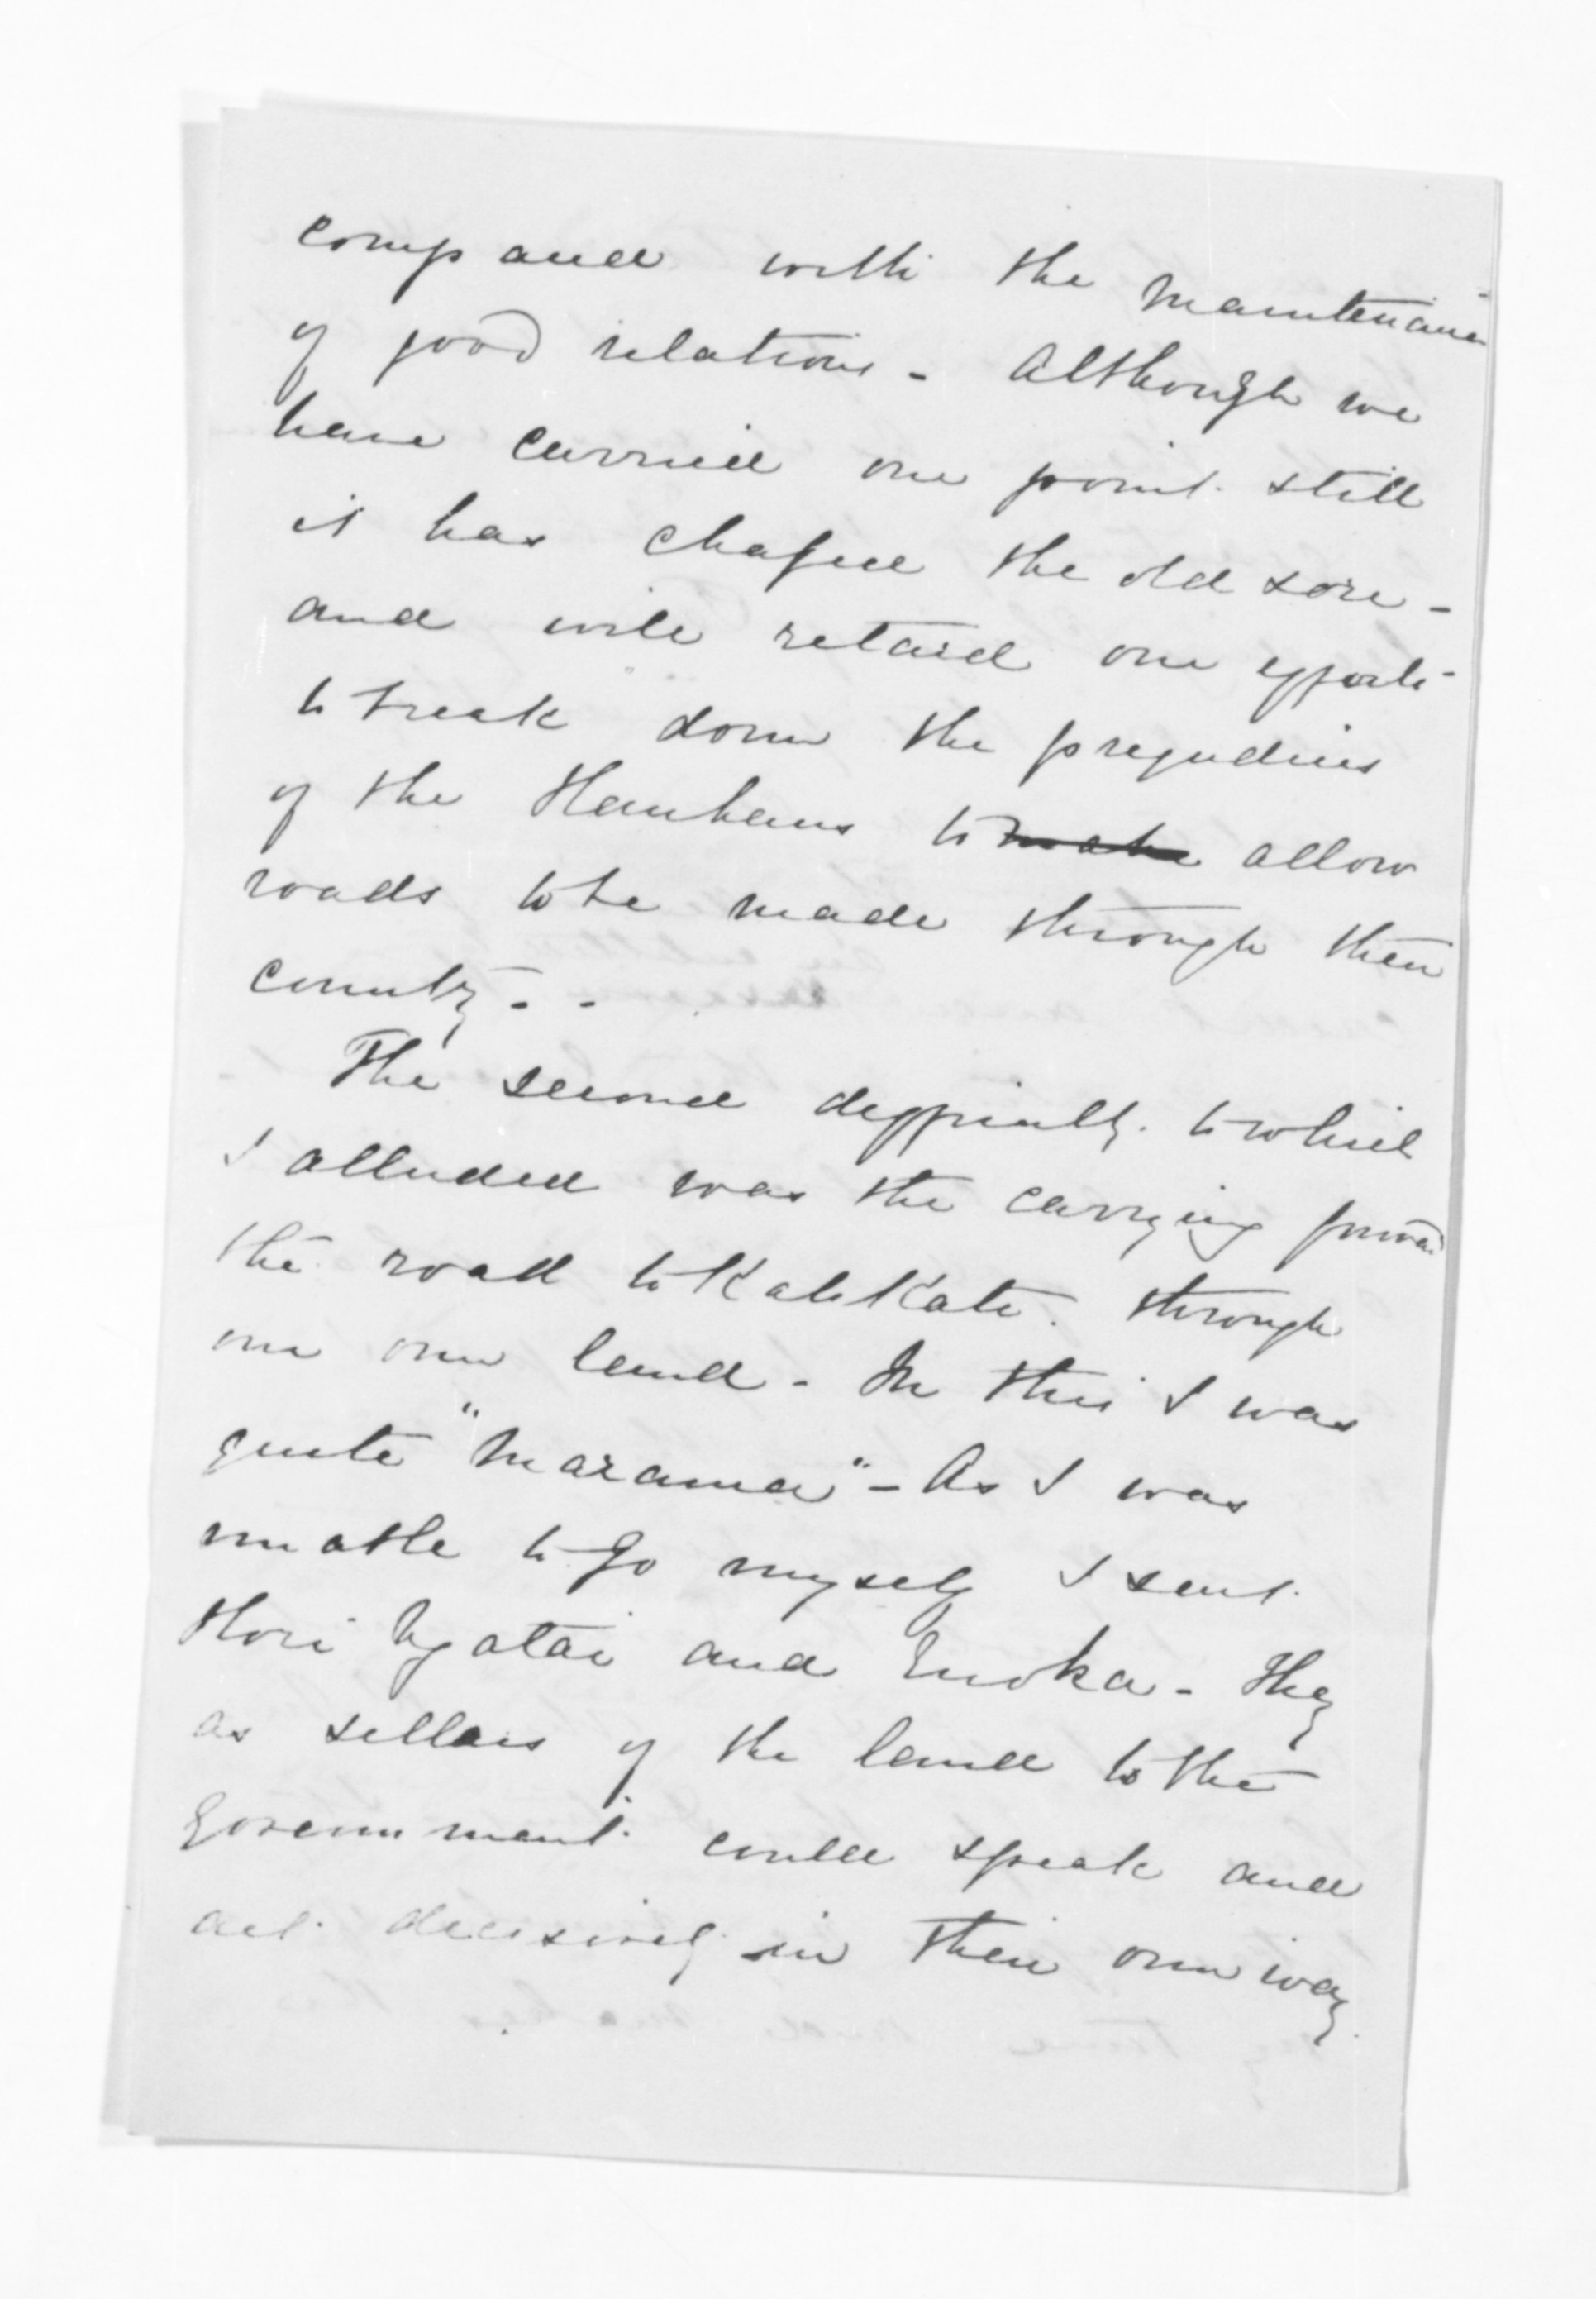 compared with the maintenance
of good relations - Although we
have carried one point still
it has chafed the old sore -
and will retard our efforts
to break down the prejudices
of the Hauhaus to make allow
roads to be made through their
country - -
The second difficulty to which
I alluded was the carrying forward
the road to KatiKati through
our own land - In this I was
quite "marama" - As I was
unable to go myself I sent
Hori Ngatai and Enoka - They
as sellers of the land to the
Government could speak and
act decisively in their own way